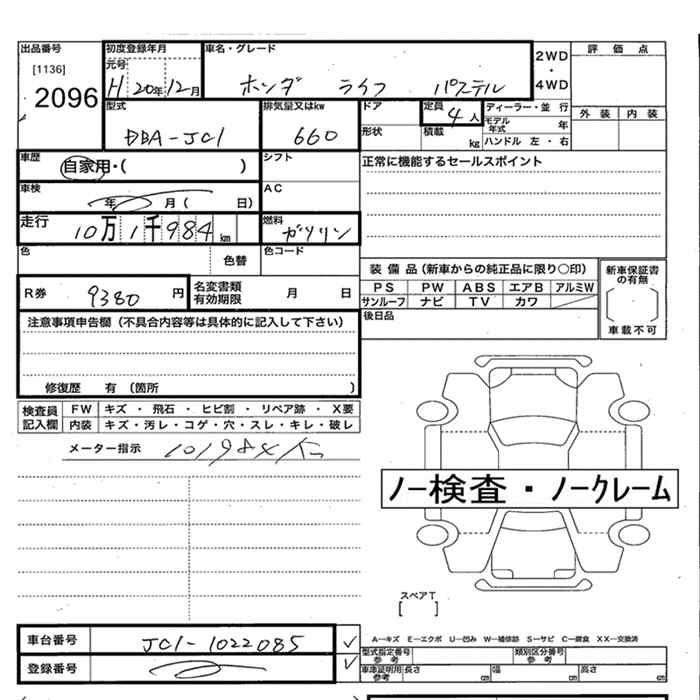 出品番号
[1136]
2096
初度登録年月
元号
H 20年 12月
車名・グレード
ホンダ ライフ パステル
2WD
・
4WD
評価点
外装 内装
型式
DBA-JC1
排気量又はkw
660
ドア
形状
定員
4人
積載 kg
ディーラー・並行
モデル年式 年
ハンドル 左・右
車歴
自家用・( )
シフト
正常に機能するセールスポイント
車検
年 月( 日)
AC
走行
10万1千984km
燃料
ガソリン
色
色替
色コード
装備品(新車からの純正品に限り○印)
PS PW ABS エアB アルミW
サンルーフ ナビ TV カワ
新車保証書の有無
車載不可
R券 9380円
名変書類有効期限 月 日
後日品
注意事項申告欄(不具合内容等は具体的に記入して下さい)
修復歴 有 (箇所 )
検査員記入欄
FW キズ・飛石・ヒビ割・リペア跡・X要
内装 キズ・汚レ・コゲ・穴・スレ・キレ・破レ
メーター指示
ノー検査・ノークレーム
スペアT
[ ]
車台番号 JC1-1022085
登録番号
A―キズ E―エクボ U―凹み W―補修跡 S―サビ C―腐食 XX―交換済
型式指定番号
参考
類別区分番号
参考
車庫証明用
参考
長さ cm 幅 cm 高さ cm